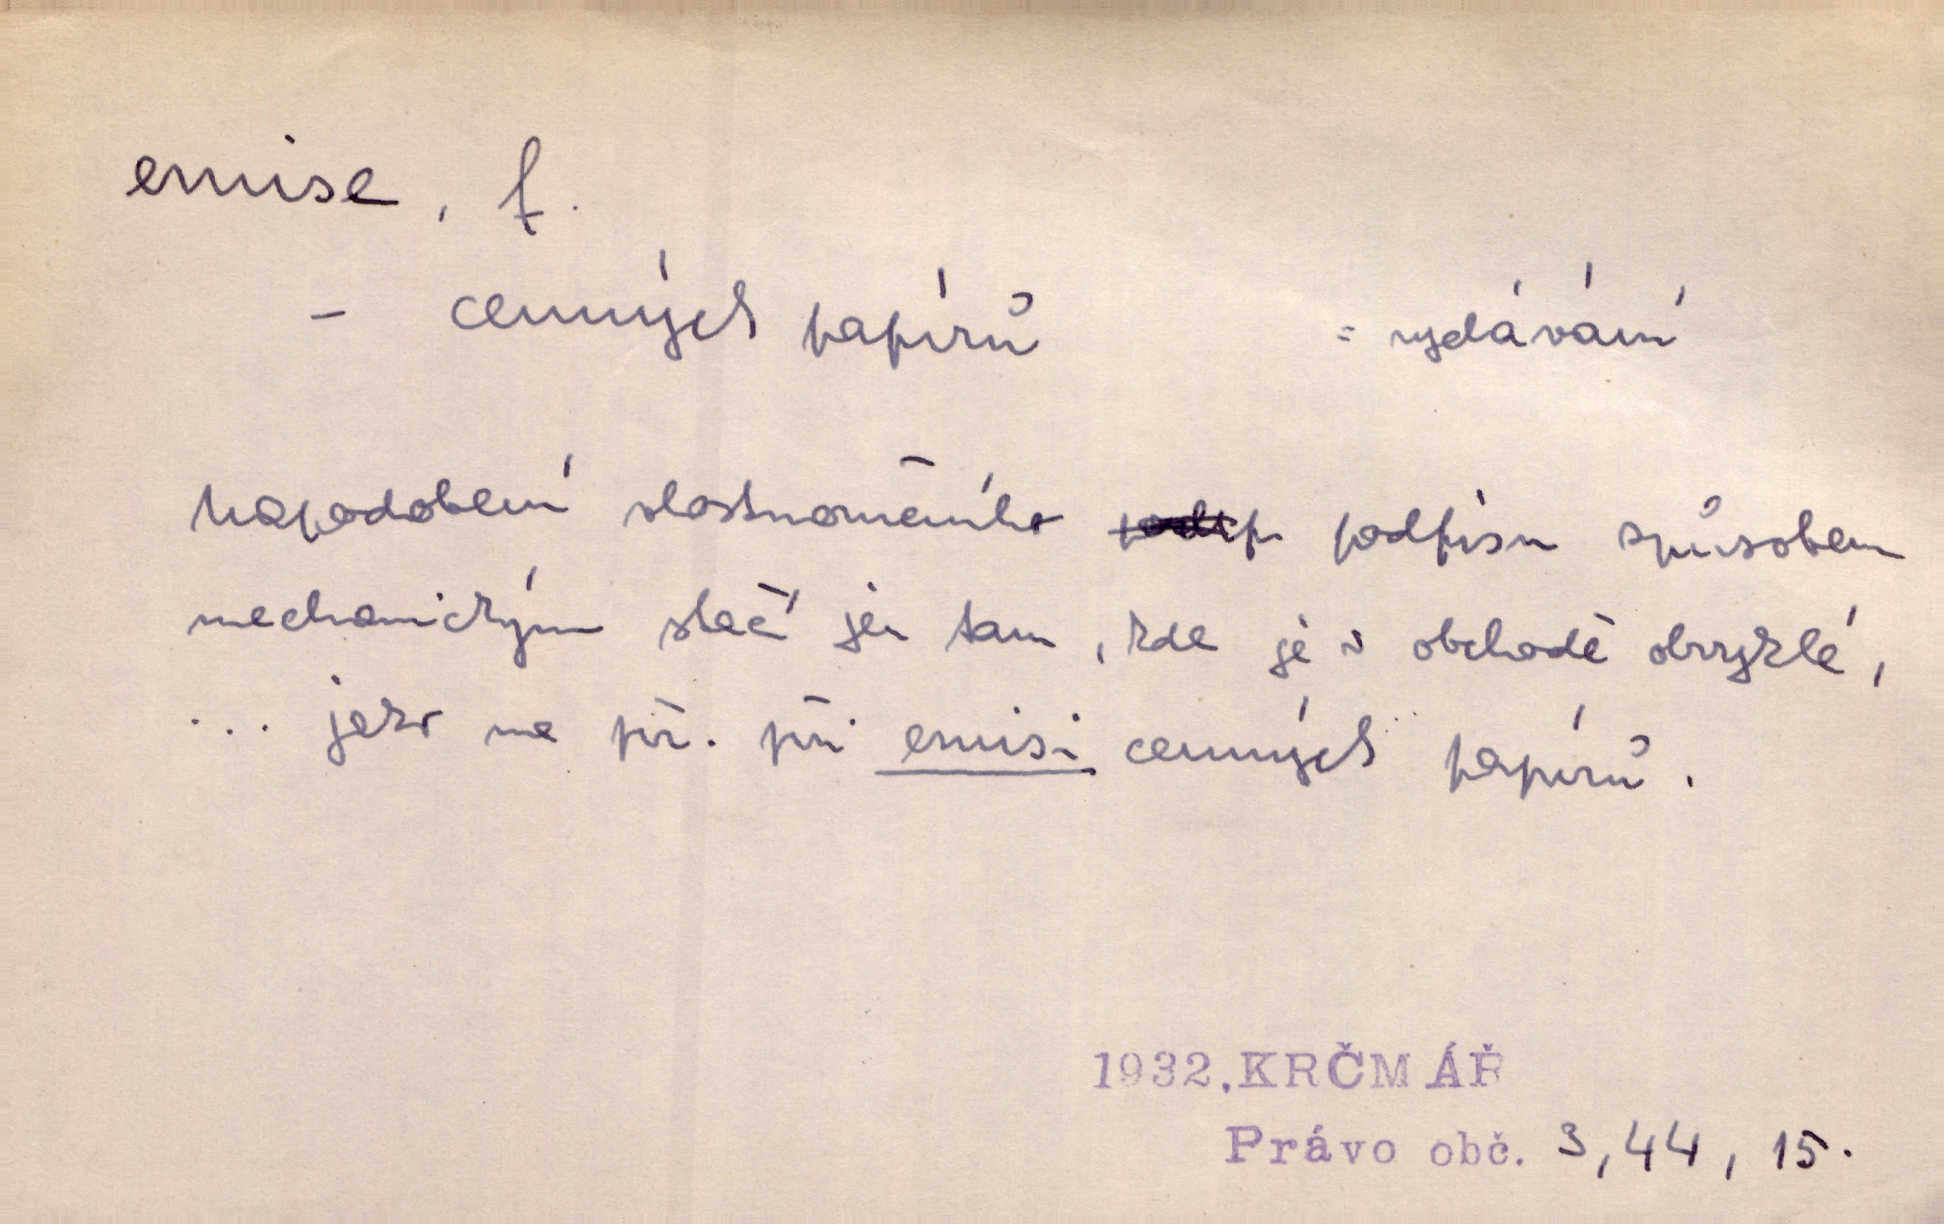 emise, f.
- cenných papírů = vydávání
Napodobení vlastnoručního podpisu způsobem
mechanickým stačí jen tam, kde je v obchodě obvyklé,
... jako na př. při emisi cenných papírů.
1932, KRČMÁŘ
Právo obč. 3, 44, 15.